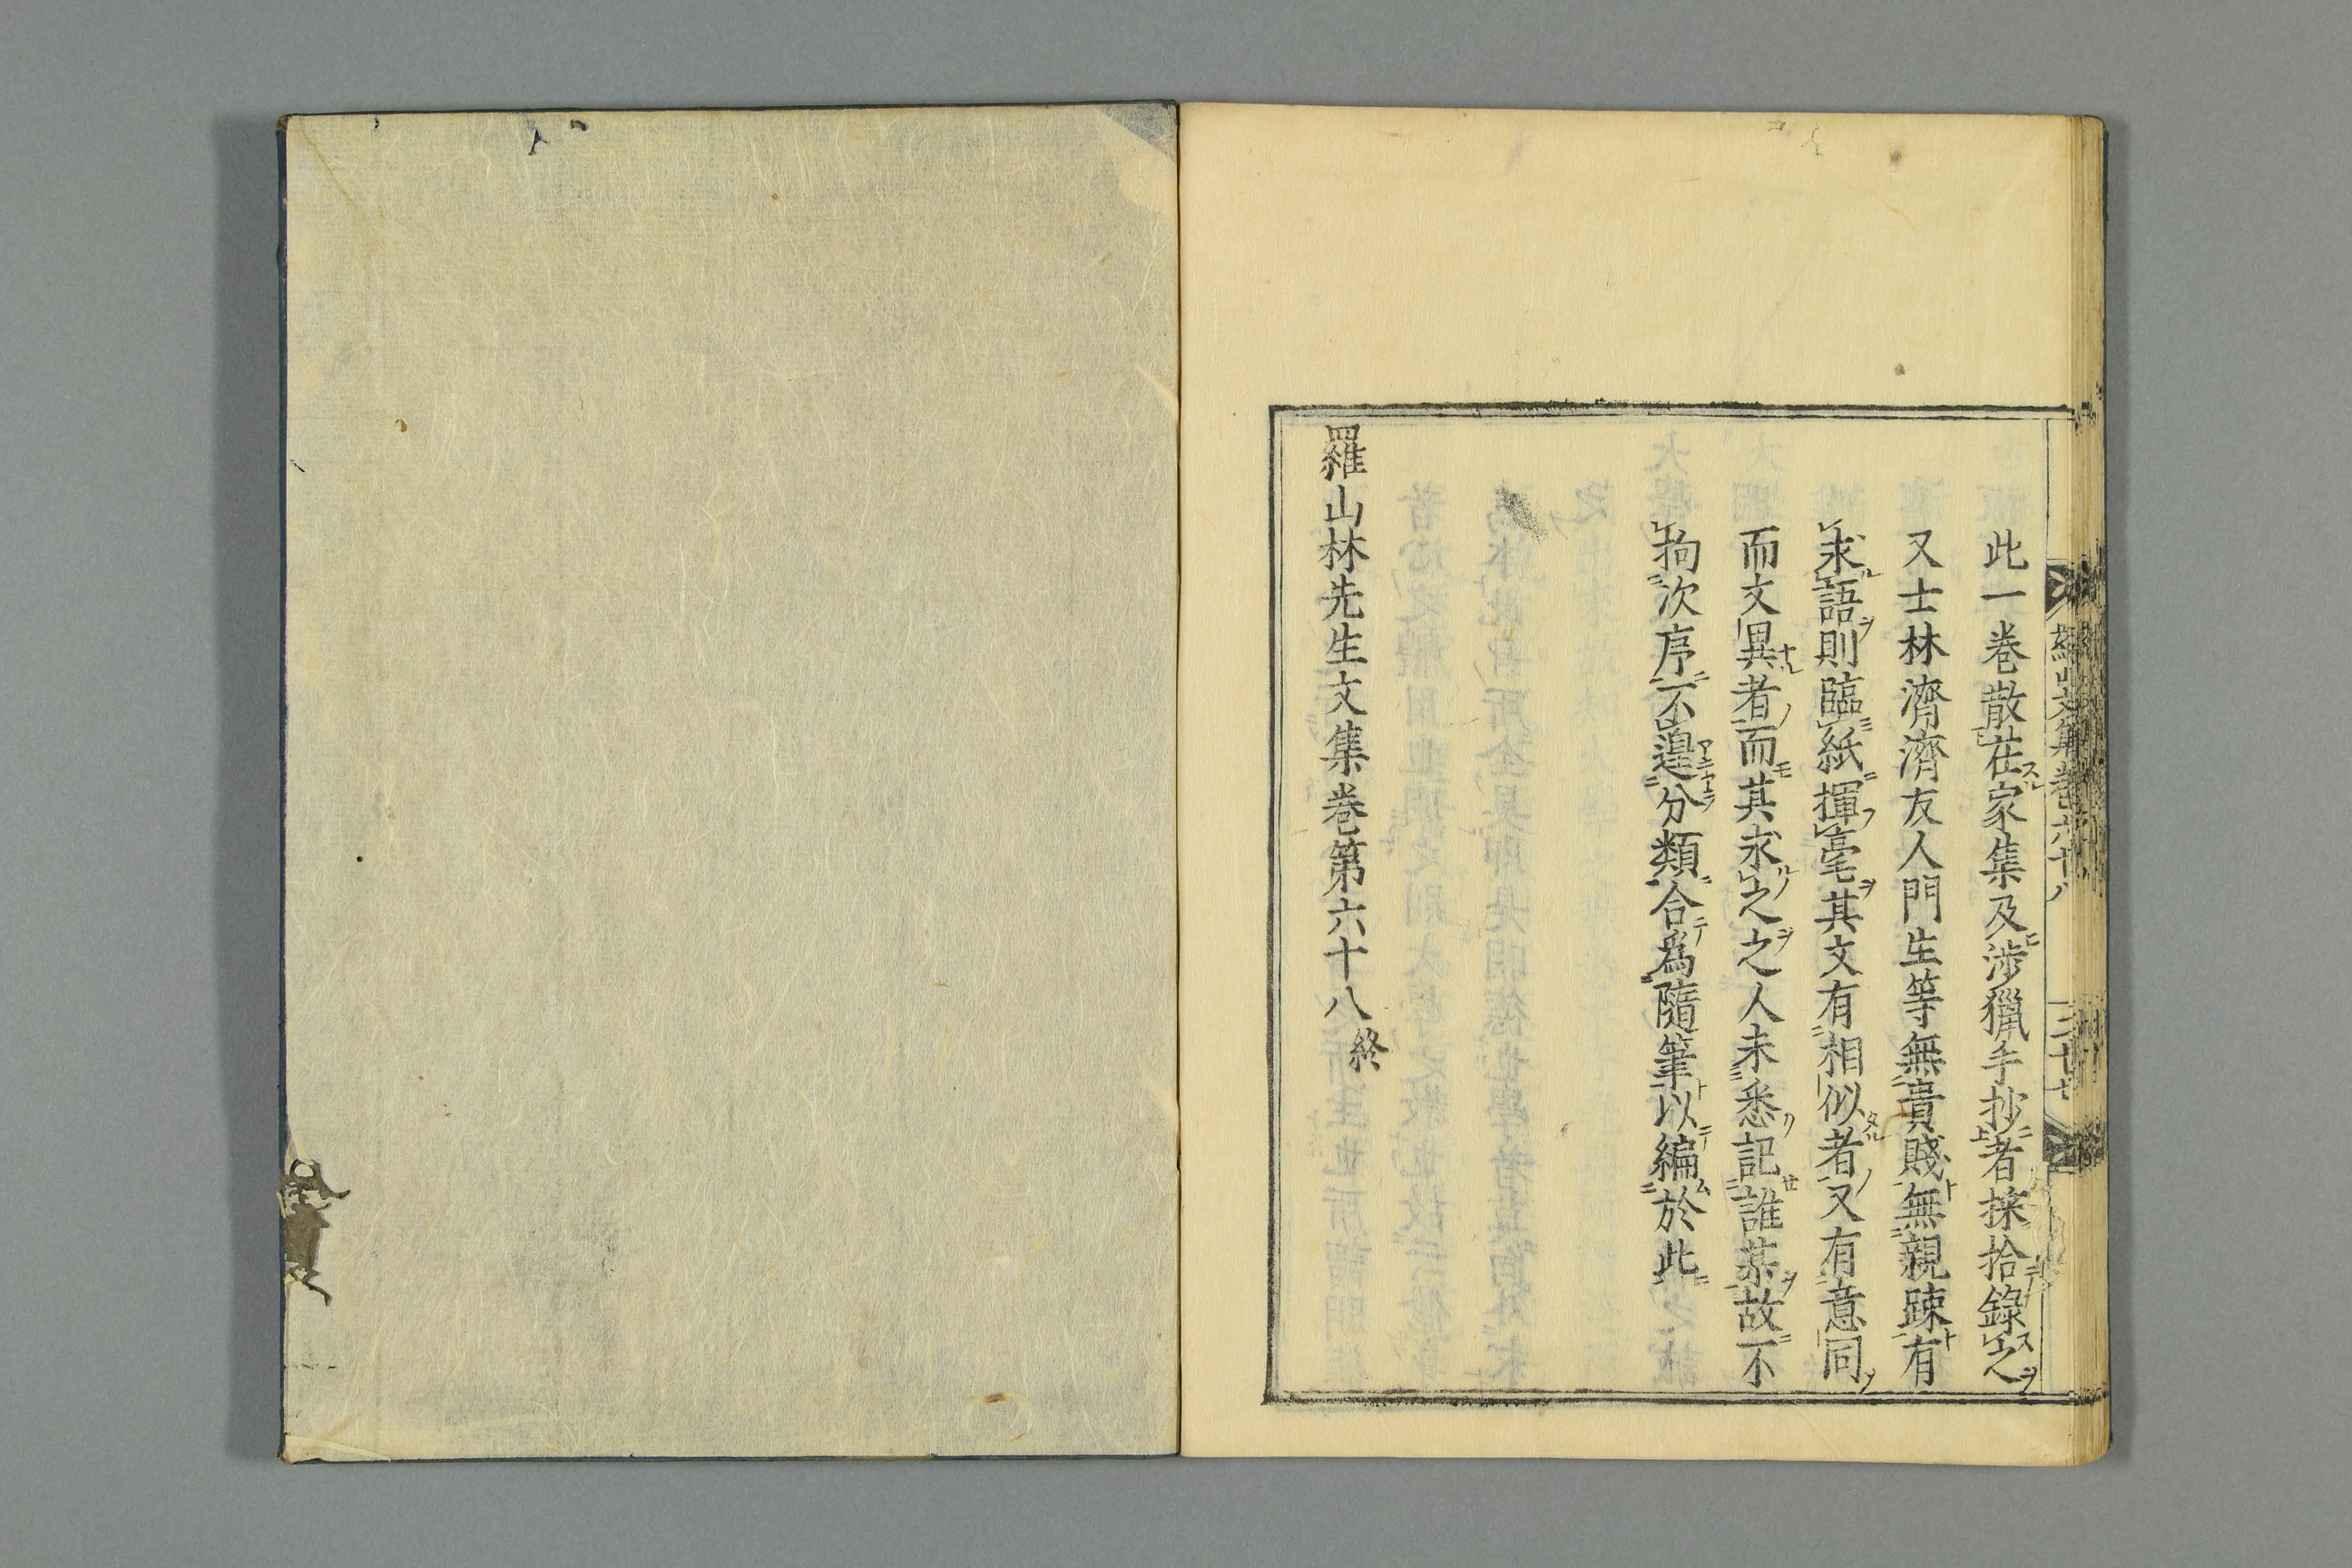 此一巻散在家集及渉獵手抄者採拾錄之
又士林濟濟友人門生等無貴賤無親踈有
求語則臨紙揮毫其文有相似者又有意同
而文異者而其求之之人未悉記誰某故不
拘次序不遑分類合爲隨筆以編於此
羅山林先生文集巻第六十八終